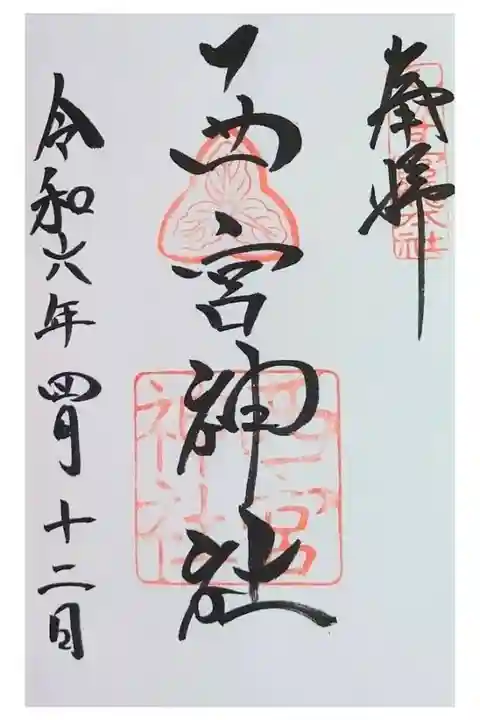 奉拝
西宮神社
西宮
神社
令和六年四月十二日